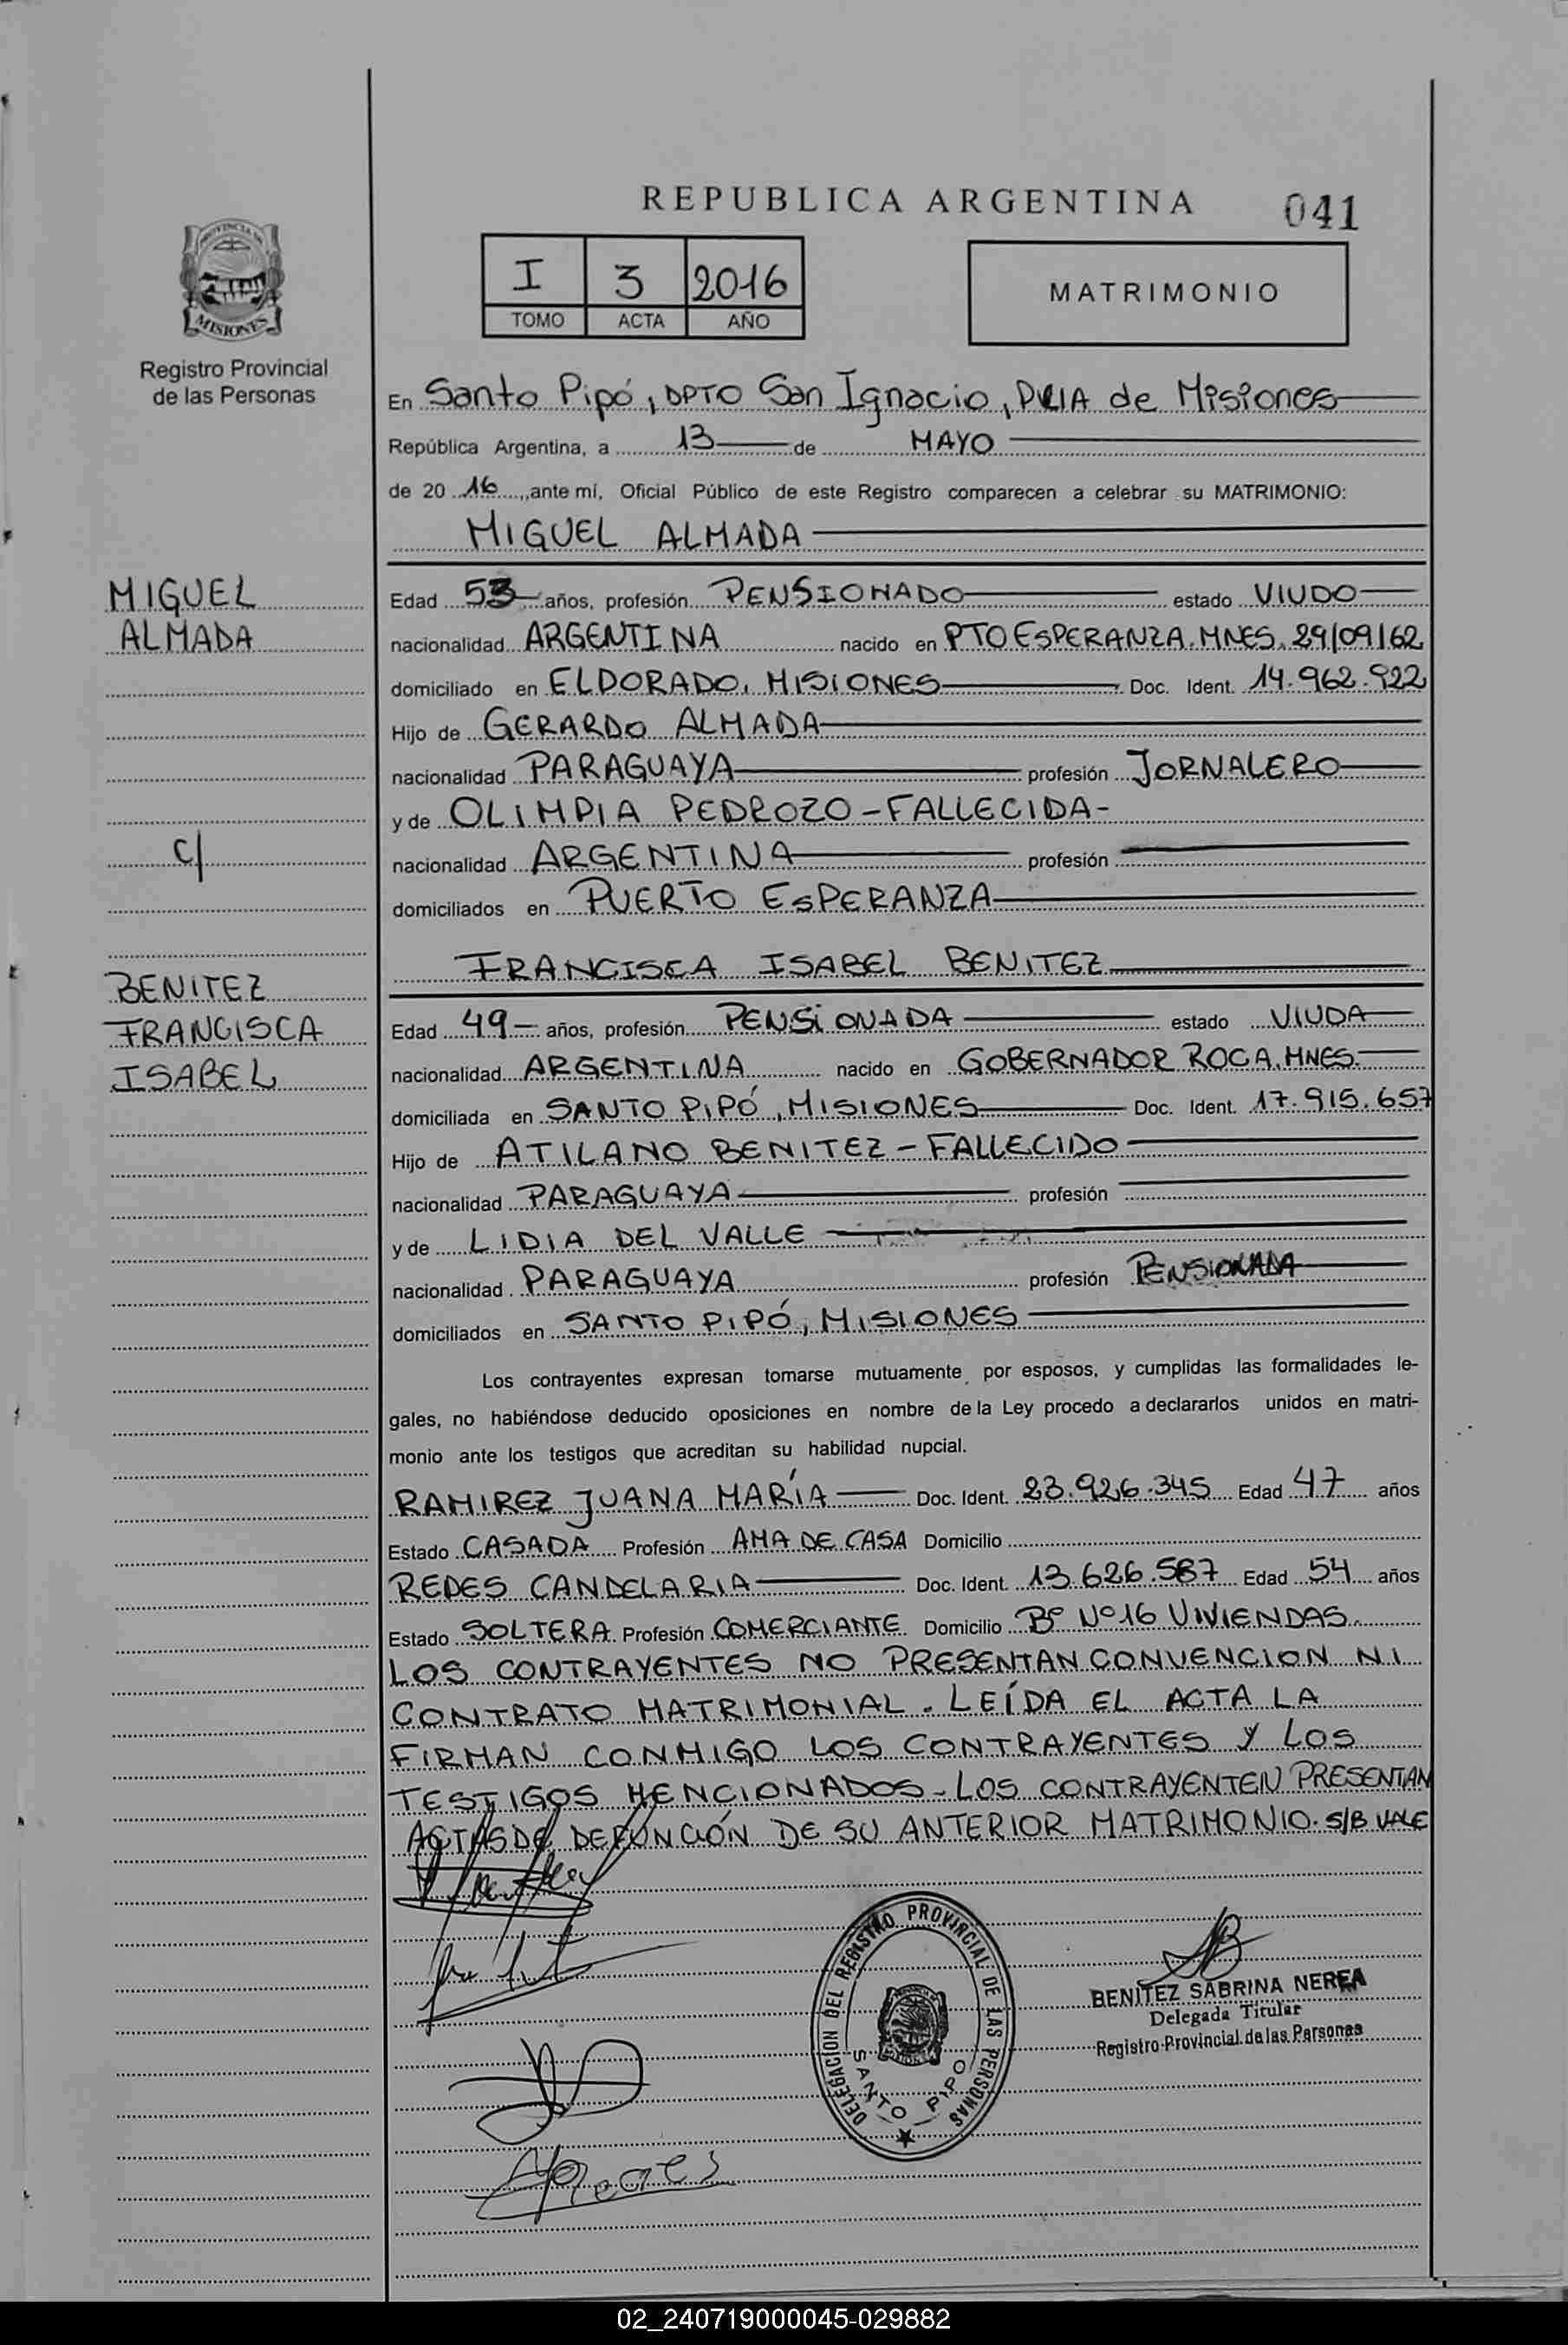 REPUBLICA ARGENTINA
041
I 3 2016
TOMO ACTA AÑO
MATRIMONIO
PROVINCIA DE
MISIONES
Registro Provincial
de las Personas
En Santo Pipó, DPTO San Ignacio, PCIA de Misiones
República Argentina, a 13 de MAYO
de 20 16, ante mí, Oficial Público de este Registro comparecen a celebrar su MATRIMONIO:
MIGUEL ALMADA
MIGUEL
ALMADA
Edad 53 años, profesión PENSIONADO estado VIUDO
nacionalidad ARGENTINA nacido en PTO ESPERANZA. MNES. 29/09/62
domiciliado en ELDORADO, MISIONES Doc. Ident. 14.962.922
Hijo de GERARDO ALMADA
nacionalidad PARAGUAYA profesión JORNALERO
y de OLIMPIA PEDROZO - FALLECIDA -
c/
nacionalidad ARGENTINA profesión
domiciliados en PUERTO ESPERANZA
FRANCISCA ISABEL BENITEZ
BENITEZ
FRANCISCA
ISABEL
Edad 49 años, profesión PENSIONADA estado VIUDA
nacionalidad ARGENTINA nacido en GOBERNADOR ROCA, MNES.
domiciliada en SANTO PIPÓ, MISIONES Doc. Ident. 17.915.657
Hijo de ATILANO BENITEZ - FALLECIDO
nacionalidad PARAGUAYA profesión
y de LIDIA DEL VALLE
nacionalidad PARAGUAYA profesión PENSIONADA
domiciliados en SANTO PIPÓ, MISIONES
Los contrayentes expresan tomarse mutuamente por esposos, y cumplidas las formalidades le-
gales, no habiéndose deducido oposiciones en nombre de la Ley procedo a declararlos unidos en matri-
monio ante los testigos que acreditan su habilidad nupcial.
RAMIREZ JUANA MARÍA Doc. Ident. 23.926.345 Edad 47 años
Estado CASADA Profesión AMA DE CASA Domicilio
REDES CANDELARIA Doc. Ident. 13.626.587 Edad 54 años
Estado SOLTERA Profesión COMERCIANTE Domicilio Bº Nº 16 VIVIENDAS.
LOS CONTRAYENTES NO PRESENTAN CONVENCION NI
CONTRATO MATRIMONIAL. LEÍDA EL ACTA LA
FIRMAN CONMIGO LOS CONTRAYENTES Y LOS
TESTIGOS MENCIONADOS - LOS CONTRAYENTEN PRESENTAN
ACTAS DE DEFUNCIÓN DE SU ANTERIOR MATRIMONIO. S/B VALE
DELEGACION DEL REGISTRO PROVINCIAL DE LAS PERSONAS
SANTO PIPO
BENITEZ SABRINA NEREA
Delegada Titular
Registro Provincial de las Personas
02_240719000045-029882